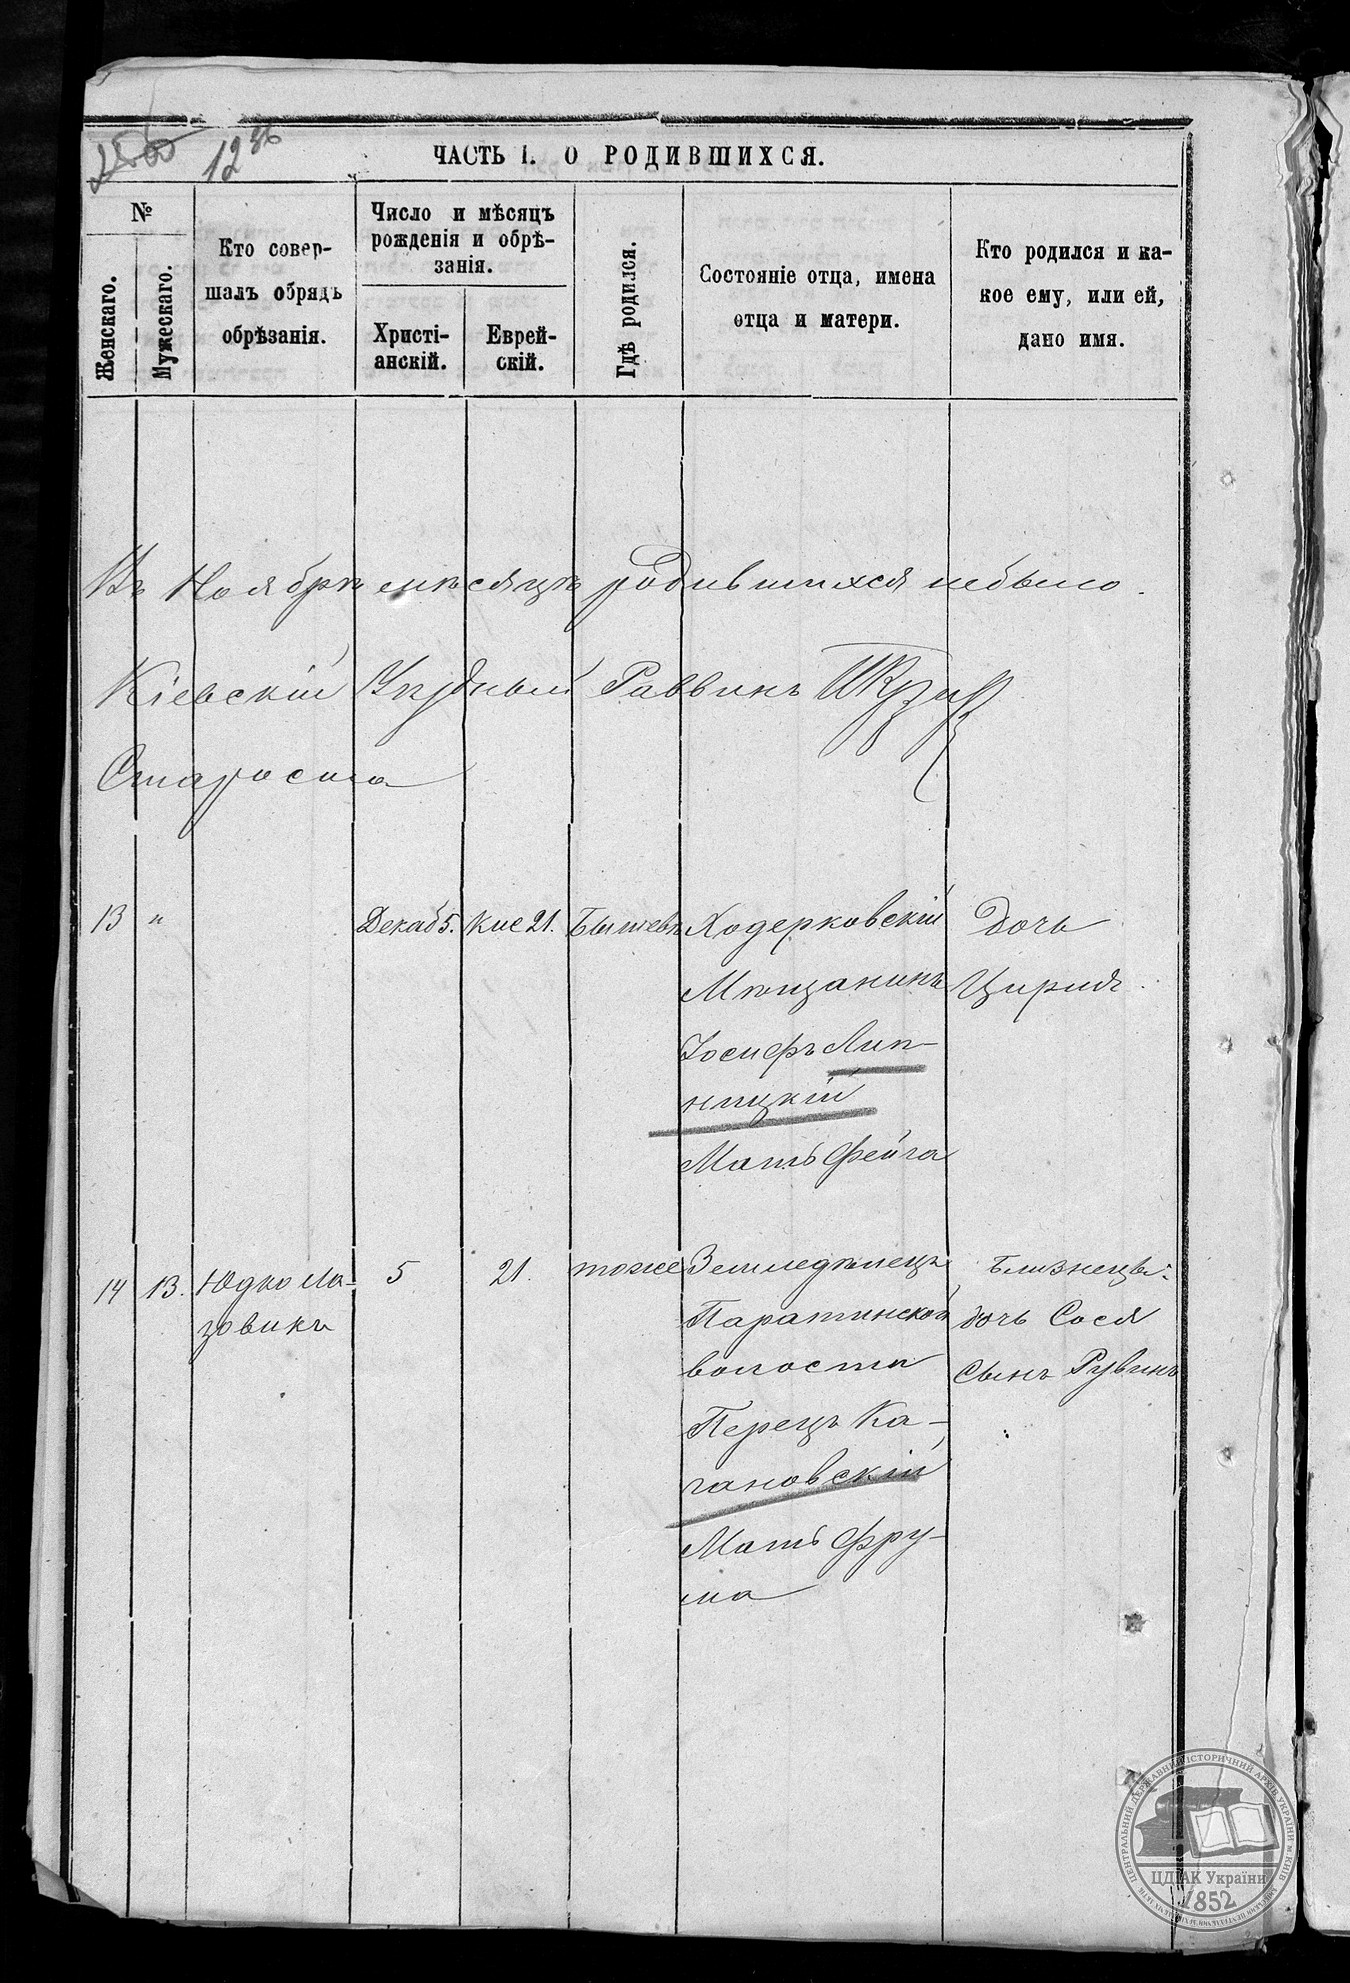 12 об
ЧАСТЬ I. О РОДИВШИХСЯ.
№
Женскаго.
Мужескаго.
Кто совер-
шалъ обрядъ
обрѣзанія.
Число и мѣсяцъ
рожденія и обрѣ-
занія.
Христі-
анскій.
Еврей-
скій.
Гдѣ родился.
Состояніе отца, имена
отца и матери.
Кто родился и ка-
кое ему, или ей,
дано имя.
Въ Ноябрѣ мѣсяцѣ родившихся небыло.
Кіевскій Уѣздный Раввинъ
Староста
13 "
Декаб 5.
Кис 21.
Бышевъ
Ходерковскій
Мѣщанинъ
Іосифъ Лип-
ницкій
Мать Фейга
Дочь
Цирия
14 13.
Юдко Ла-
зовикъ
5
21.
тоже
Земледѣлецъ
волости
Перецъ Ка-
гановскій
Мать Фру-
ма
Близнецы:
дочь Сося
Сынъ Рувинъ
ЦЕНТРАЛЬНИЙ ДЕРЖАВНИЙ ІСТОРИЧНИЙ АРХІВ УКРАЇНИ м КИЇВ
ЦДІАК України
1852